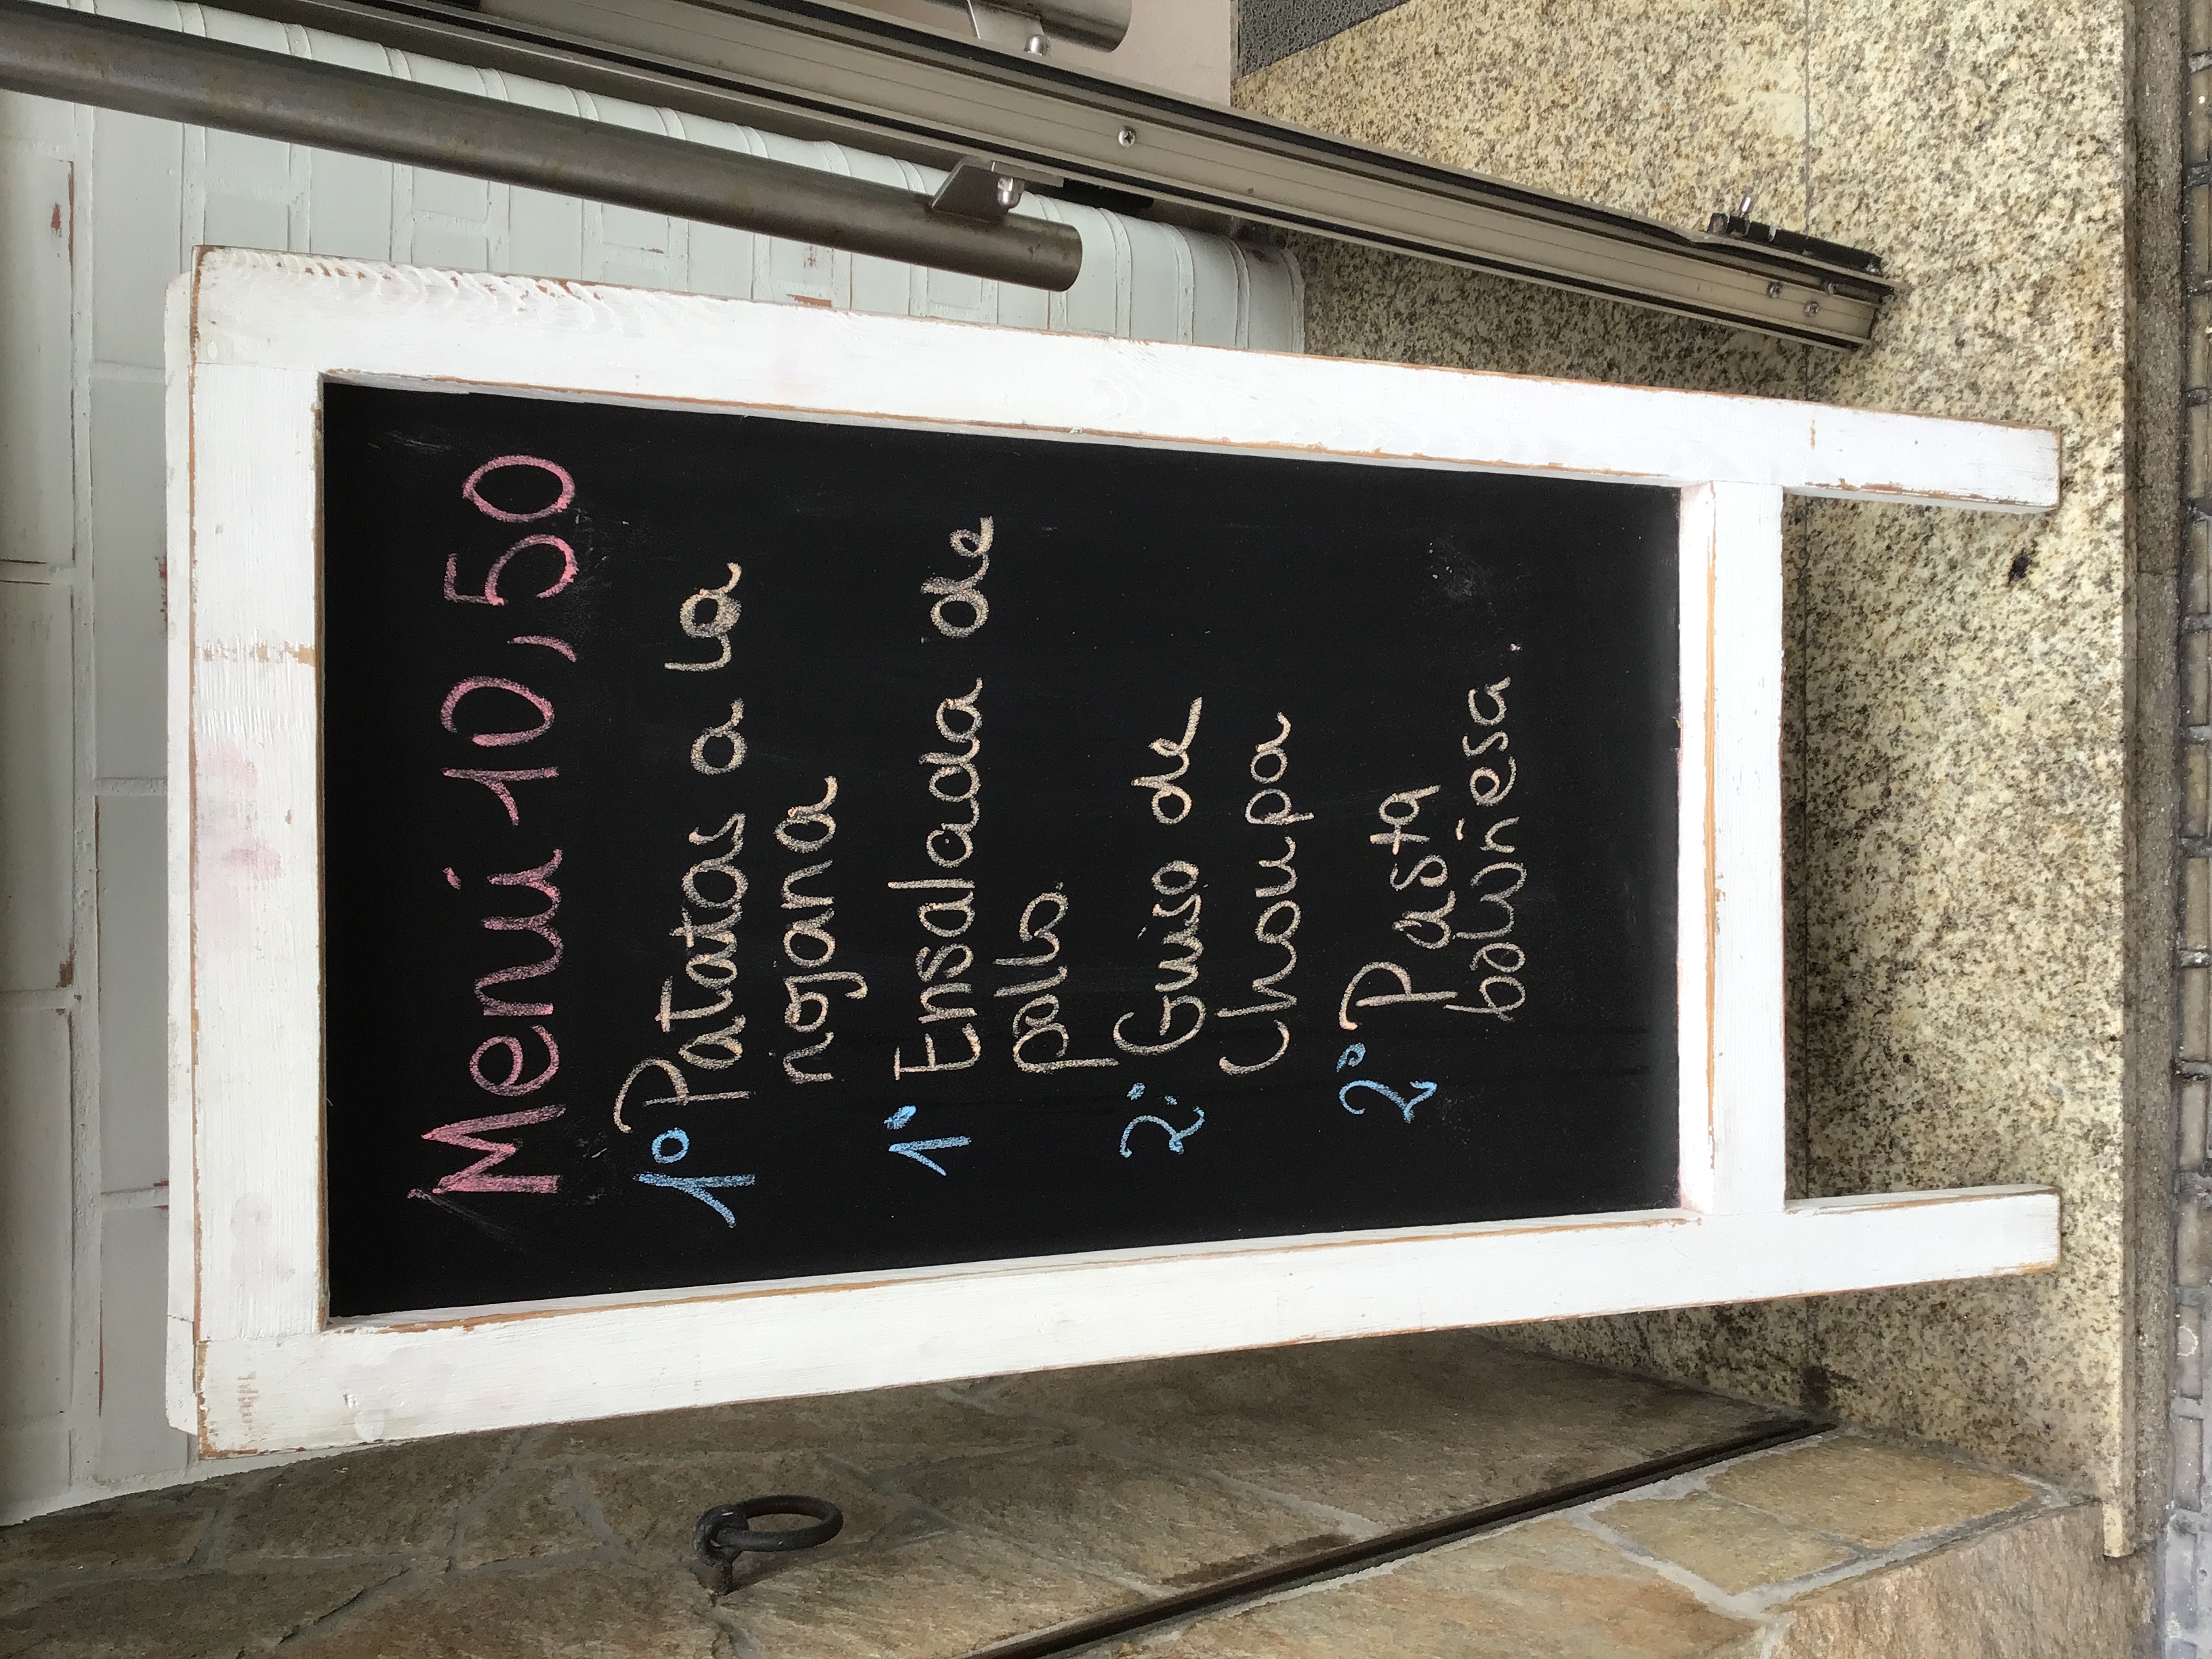 Menú 10,50
1º Patatas a la
riojana
1º Ensalada de
pollo.
2º Guiso de
choupa
2º Pasta
boloñesa.